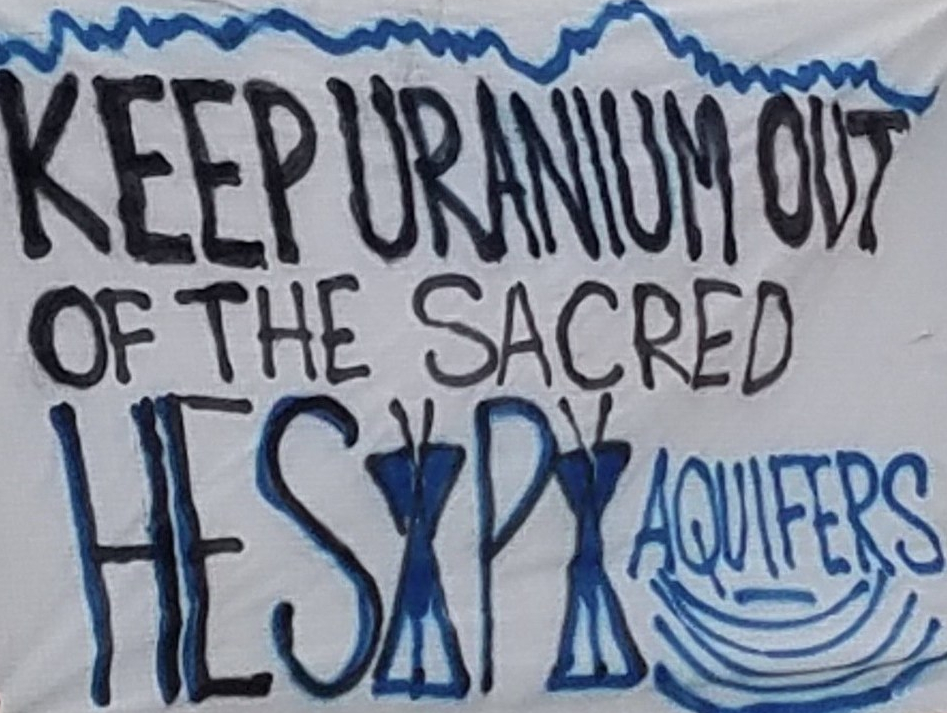 KEEP URANIUM OUT
OF THE SACRED
HESAPA AQUIFERS